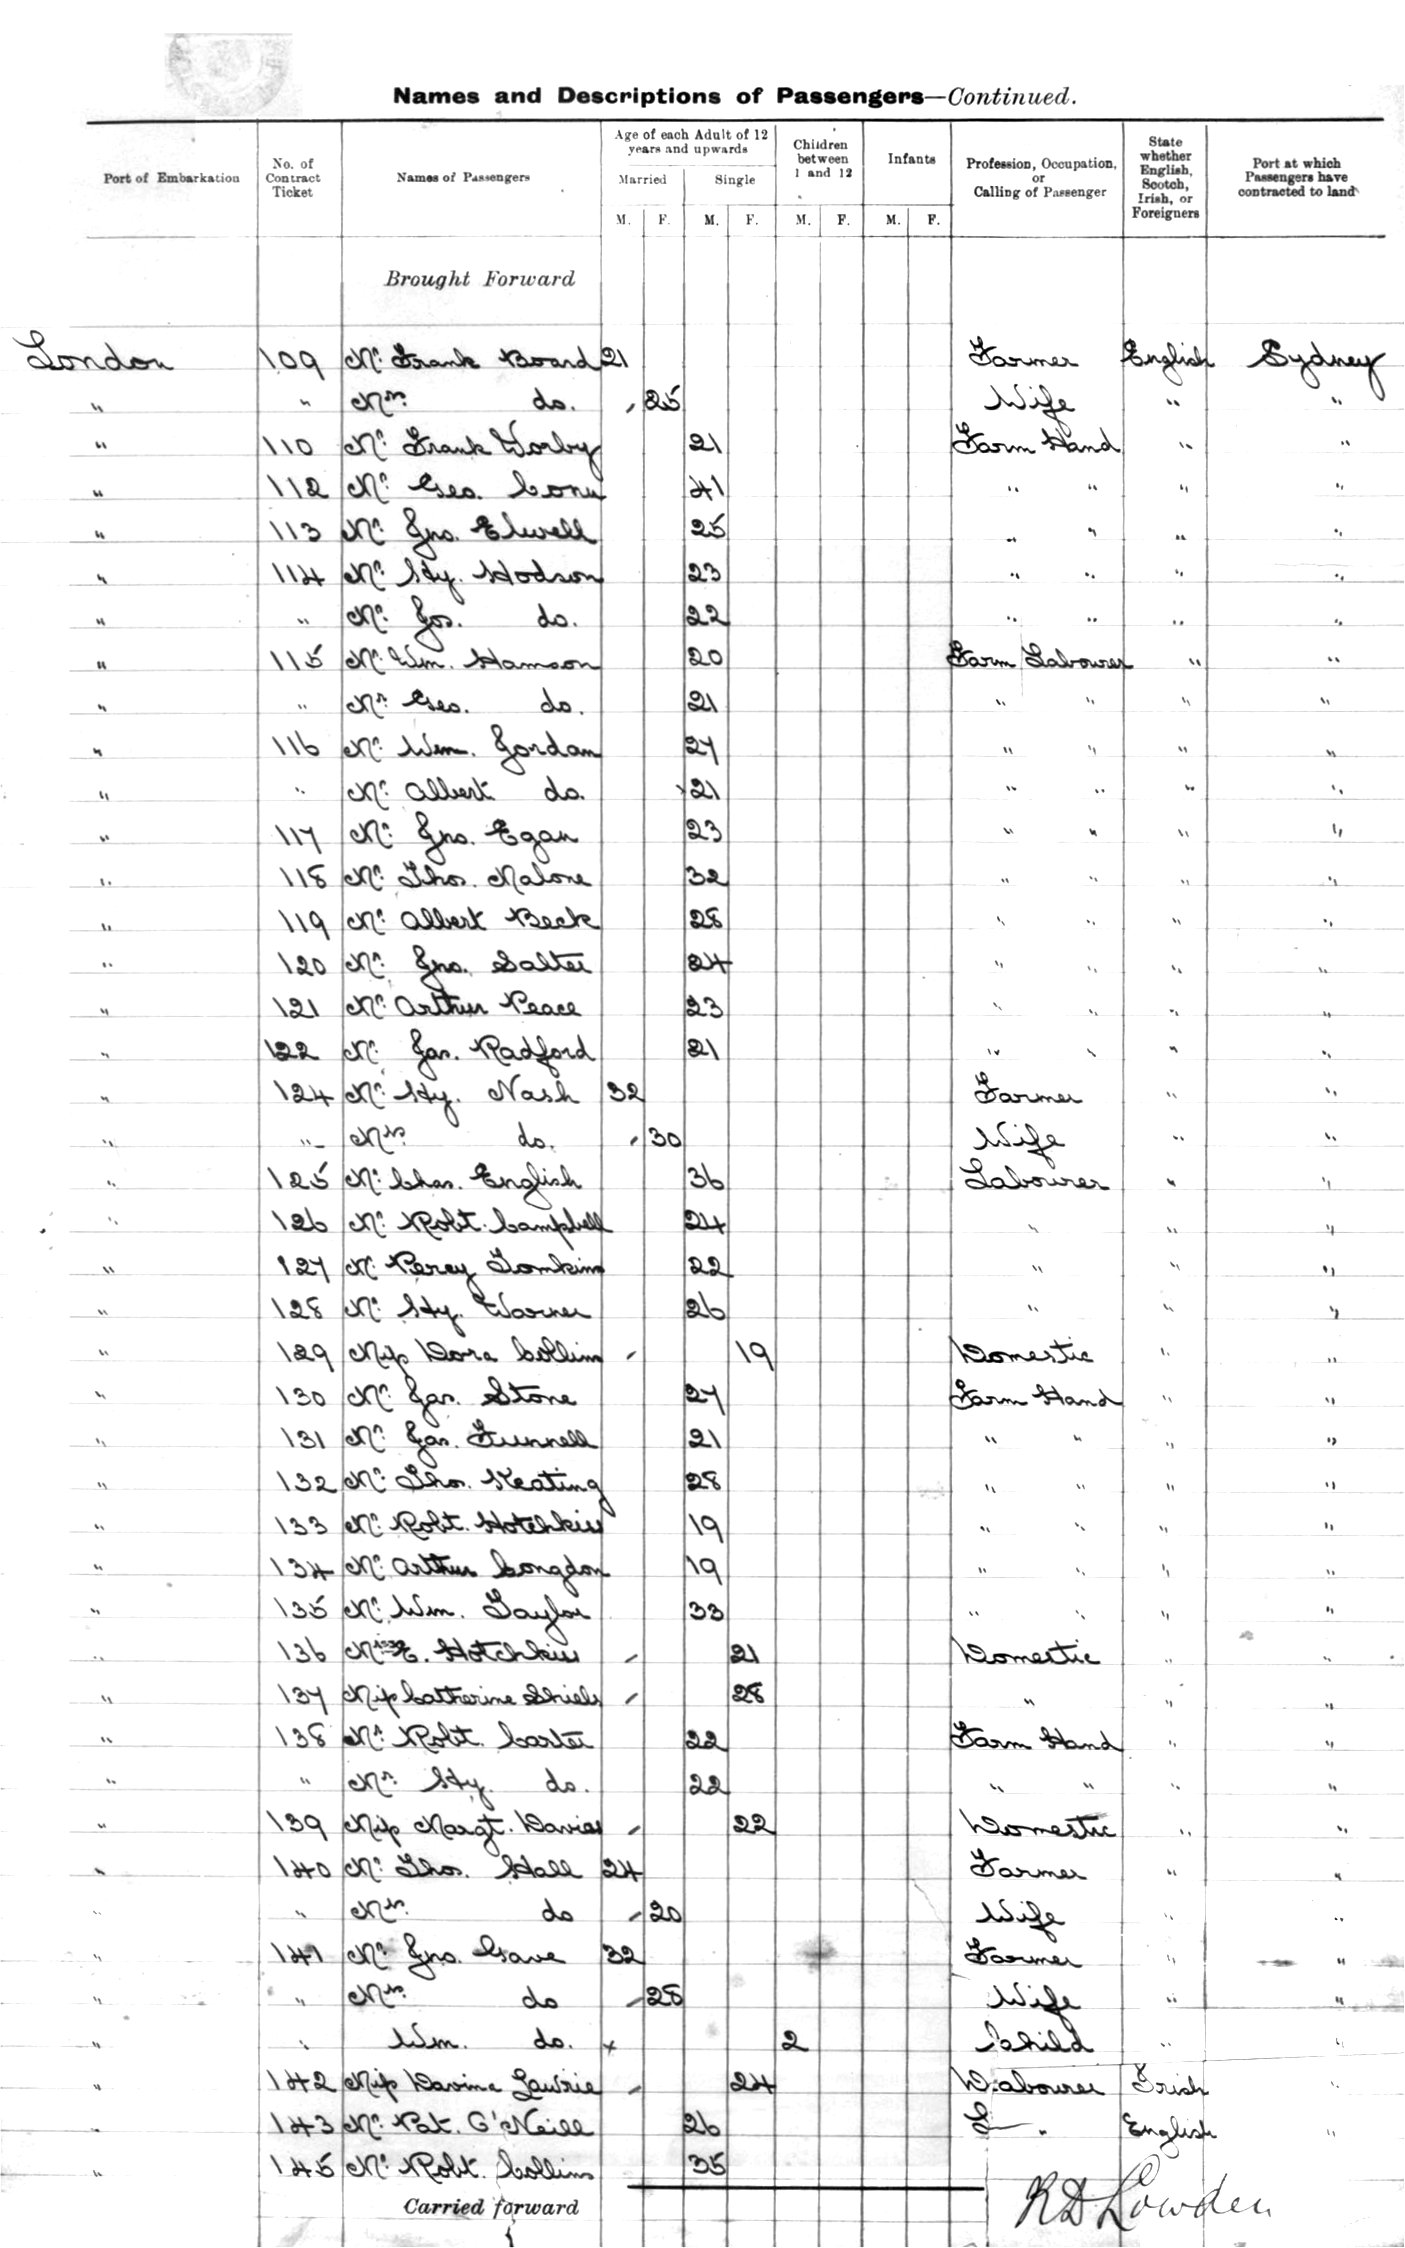 Names and Descriptions of Passengers—Continued.
Port of Embarkation | No. of Contract Ticket | Names of Passengers | Age of each Adult of 12 years and upwards | Children between 1 and 12 | Infants | Profession, Occupation, or Calling of Passenger | State whether English, Scotch, Irish, or Foreigners | Port at which Passengers have contracted to land
Married Single
M. F. M. F. M. F. M. F.
Brought Forward
London 109 Mr. Frank Board 21 Farmer English Sydney
" " Mrs. do. 25 Wife " "
" 110 Mr. Frank Worby 21 Farm Hand " "
" 112 Mr. Geo. 41 " " " "
" 113 Mr. Jno. Elwell 25 " " " "
" 114 Mr. Hy. Hodson 23 " " " "
" " Mr. Jos. do. 22 " " " "
" 115 Mr. Wm. Hamson 20 Farm Labourer " "
" " Mr. Geo. do. 21 " " " "
" 116 Mr. Wm. Jordan 27 " " " "
" " Mr. Albert do. 21 " " " "
" 117 Mr. Jno. Egan 23 " " " "
" 118 Mr. Thos. Malone 32 " " " "
" 119 Mr. Albert Beck 28 " " " "
" 120 Mr. Jno. Salter 24 " " " "
" 121 Mr. Arthur Peace 23 " " " "
" 122 Mr. Jas. Radford 21 " " " "
" 124 Mr. Hy. Nash 32 Farmer " "
" " Mrs. do. 30 Wife " "
" 125 Mr. Chas. English 36 Labourer " "
" 126 Mr. Robt. Campbell 24 " " "
" 127 Mr. Percy Tomkins 22 " " "
" 128 Mr. Hy. Warner 26 " " "
" 129 Miss Dora Collins 19 Domestic " "
" 130 Mr. Jas. Stone 27 Farm Hand " "
" 131 Mr. Jas. Funnell 21 " " " "
" 132 Mr. Thos. Keating 28 " " " "
" 133 Mr. Robt. Hotchkiss 19 " " " "
" 134 Mr. Arthur Congdon 19 " " " "
" 135 Mr. Wm. Taylor 33 " " " "
" 136 Miss E. Hotchkiss 21 Domestic " "
" 137 Miss Catherine Shiels 28 " " "
" 138 Mr. Robt. Carter 22 Farm Hand " "
" " Mr. Hy. do. 22 " " " "
" 139 Miss Margt. Davies 22 Domestic " "
" 140 Mr. Thos. Hall 24 Farmer " "
" " Mrs. do 20 Wife " "
" 141 Mr. Jno. Gave 32 Farmer " "
" " Mrs. do 28 Wife " "
" " Wm. do. x 2 Child " "
" 142 Miss Davina Lawrie 24 Irish "
" 143 Mr. Pat. O'Neill 26 L " English "
" 145 Mr. Robt. Collins 35
Carried forward
R D Lowden